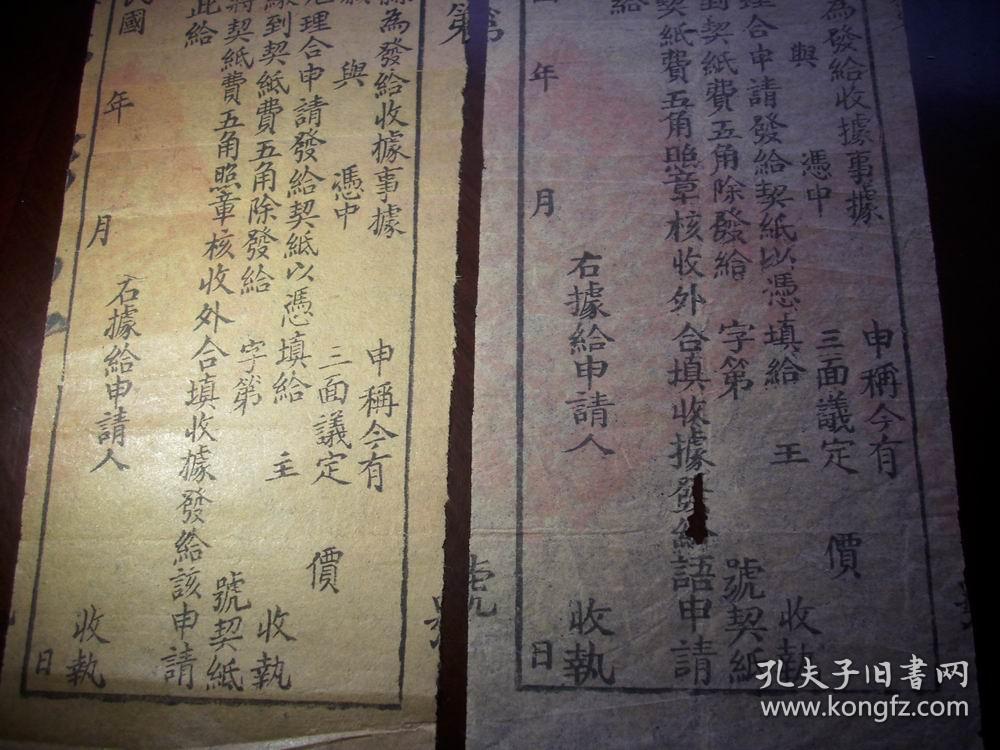 為發給收據事據 申稱今有
與 憑中 三面議定 價
理合申請發給契紙以憑填給 主 收執
到契紙費五角除發給 字第 號契紙
契紙費五角照章核收外合填收據發給語申請
給
右據給申請人 收執
年 月 日
第 號
為發給收據事據 申稱今有
與 憑中 三面議定 價
理合申請發給契紙以憑填給 主 收執
繳到契紙費五角除發給 字第 號契紙
將契紙費五角照章核收外合填收據發給該申請
此給
右據給申請人 收執
民國 年 月 日
孔夫子旧书网
www.kongfz.com